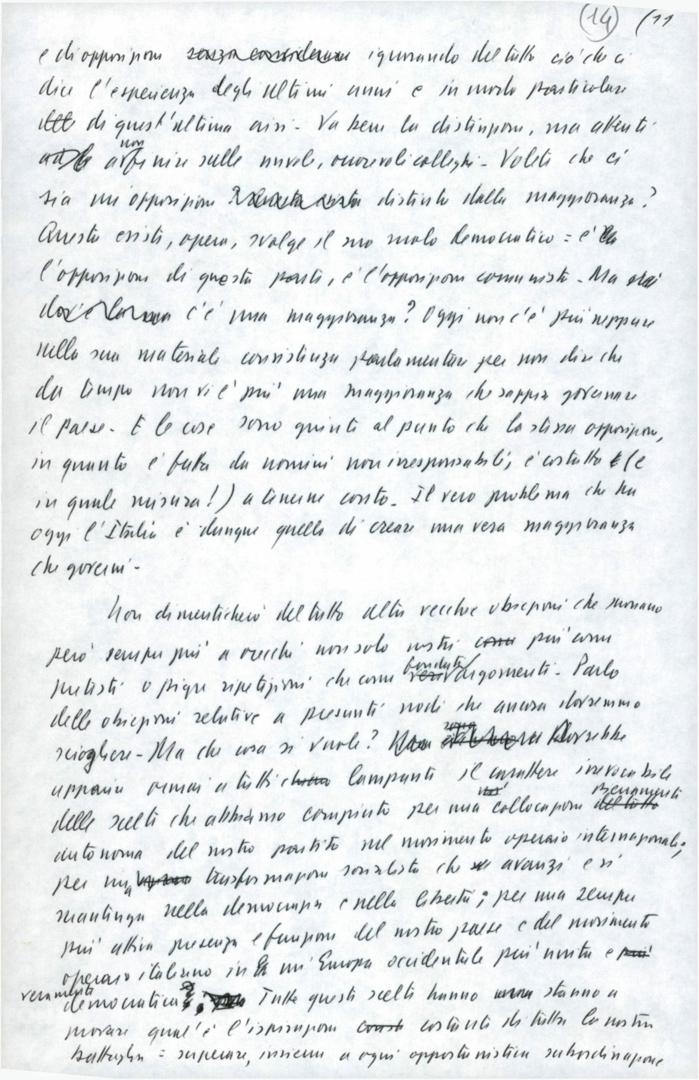 (14) (11
e di opposizione senza considerare ignorando del tutto ciò che ci
dice l'esperienza degli ultimi anni e in modo particolare
di quest'ultima crisi. Va bene la distinzione, ma attenti
a non finire sulle nuvole, onorevoli colleghi. Volete che ci
sia un'opposizione distinta dalla maggioranza?
Questa esiste, opera, svolge il suo ruolo democratico: è
l'opposizione di questa parte, è l'opposizione comunista. Ma
dov'è c'è una maggioranza? Oggi non c'è più neppure
nella sua materiale consistenza parlamentare per non dire che
da tempo non vi è più una maggioranza che sappia governare
il paese. E le cose sono giunte al punto che la stessa opposizione,
in quanto è fatta da uomini non irresponsabili, è costretta (e
in quale misura!) a tenerne conto. Il vero problema che ha
oggi l'Italia è dunque quello di creare una vera maggioranza
che governi.
Non dimenticherò del tutto altre vecchie obiezioni che suonano
però sempre più a orecchi non solo nostri come più come
pretesti o pigre ripetizioni che come fondati argomenti. Parlo
delle obiezioni relative a presunti nodi che ancora dovremmo
sciogliere. Ma che cosa si vuole? Dovrebbe
apparire ormai a tutti lampante il carattere irrevocabile
delle scelte che abbiamo compiuto per una collocazione pienamente del tutto
autonoma del nostro partito nel movimento operaio internazionale;
per una trasformazione socialista che avanzi e si
mantenga nella democrazia e nella libertà; per una sempre
più attiva presenza e funzione del nostro paese e del movimento
operaio italiano in un'Europa occidentale più unita e più
veramente democratica. Tutte queste scelte hanno stanno a
provare qual'è l'ispirazione costante di tutta la nostra
battaglia: superare, insieme a ogni opportunistica subordinazione